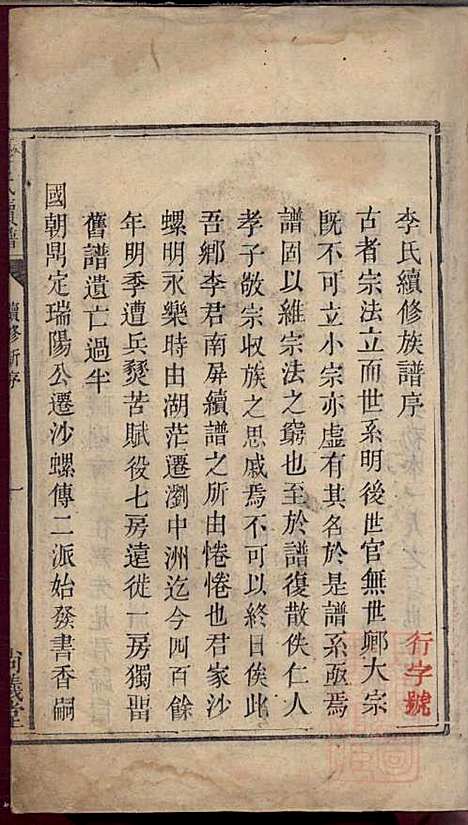 李氏續修族譜序
行字號
古者宗法立而世系明後世官無世卿大宗
既不可立小宗亦虛有其名於是譜系亟焉
譜固以維宗法之窮也至於譜復散佚仁人
孝子敬宗收族之思戚焉不可以終日俟此
吾鄉李君南屏續譜之所由惓惓也君家沙
螺明永樂時由湖茫遷瀏中洲迄今四百餘
年明季遭兵燹苦賦役七房遠徙一房獨留
舊譜遺亡過半
國朝鼎定瑞陽公遷沙螺傳二派始發書香嗣
氏續譜
續修新序
一
尚義堂